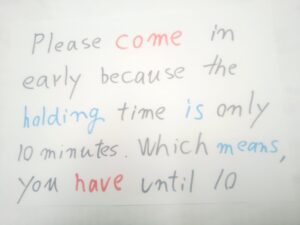 Please come in
early because the
holding time is only
10 minutes. Which means,
you have until 10